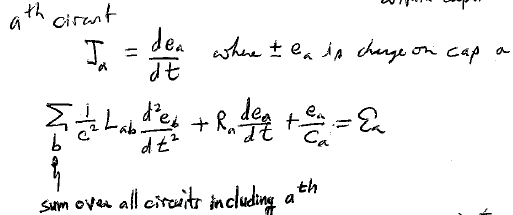 a^th circuit
J_a = de_a/dt where ± e_a is charge on cap a
∑_b 1/c² L_ab d²e_b/dt² + R_a de_a/dt + e_a/C_a = ℰ_a
sum over all circuits including a^th